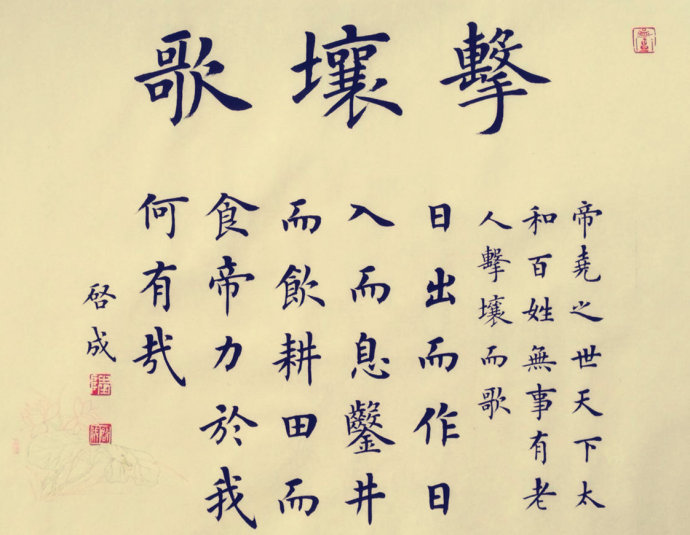 擊壤歌
帝堯之世天下太
和百姓無事有老
人擊壤而歌
日出而作日
入而息鑿井
而飲耕田而
食帝力於我
何有哉
啓成